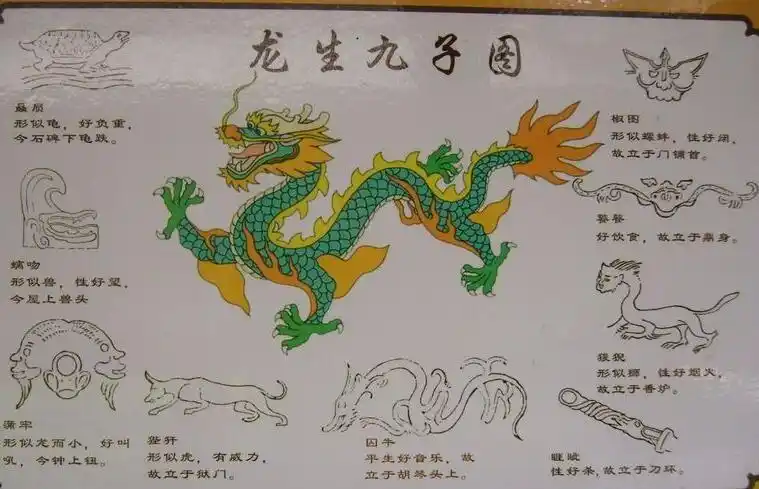 龙生九子图
赑屃
形似龟，好负重，
今石碑下龟趺。
螭吻
形似兽，性好望，
今屋上兽头
蒲牢
形似龙而小，好叫
吼，今钟上钮。
狴犴
形似虎，有威力，
故立于狱门。
囚牛
平生好音乐，故
立于胡琴头上。
椒图
形似螺蚌，性好闭，
故立于门铺首。
饕餮
好饮食，故立于鼎身。
狻猊
形似狮，性好烟火，
故立于香炉。
睚眦
性好杀，故立于刀环。